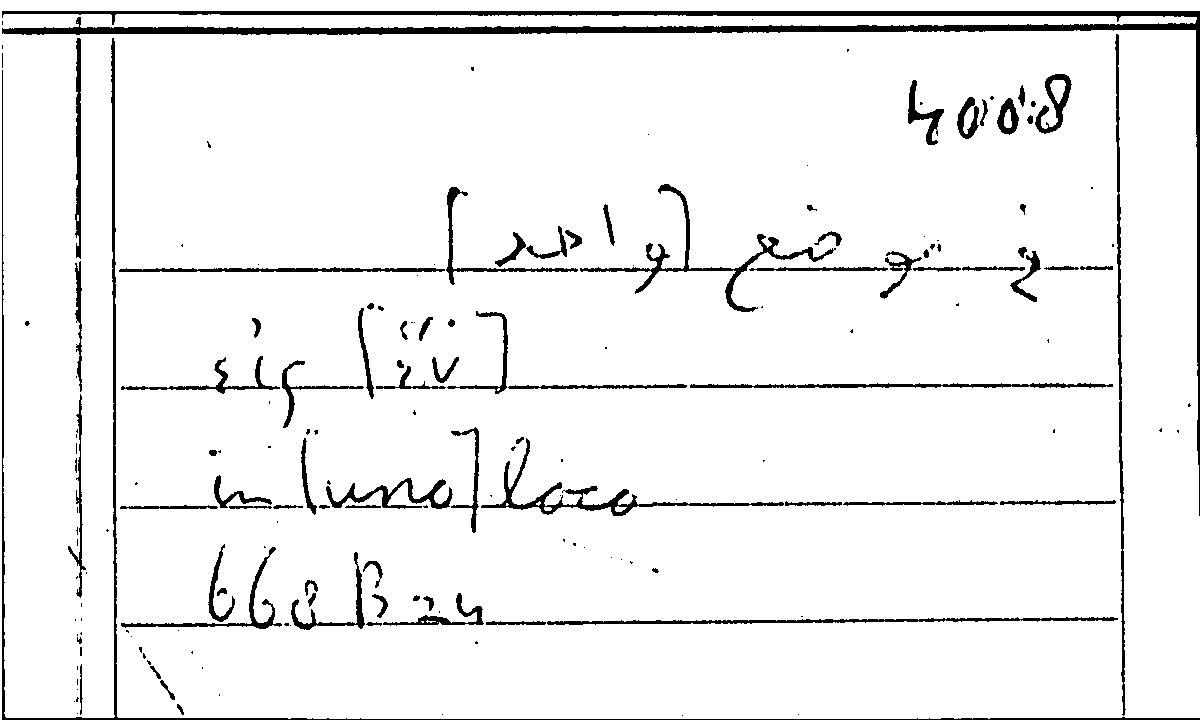 4008
في موضع [واحد]
εἰς [ἕν]
in [uno] loco
668 B 24